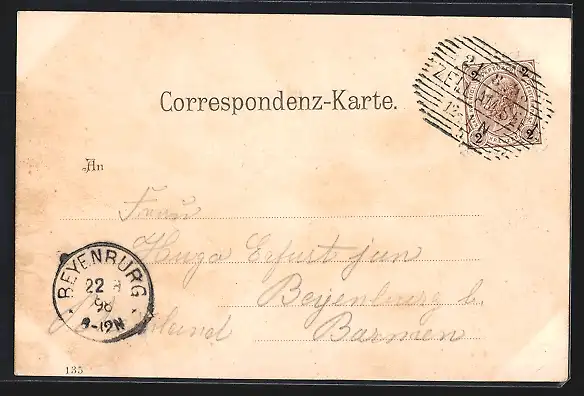 Correspondenz-Karte.
An
Frau
Hugo Erfurt jun
Beyenburg b.
Barmen
BEYENBURG
22 8
98
9-12N
2 2
2 2
135